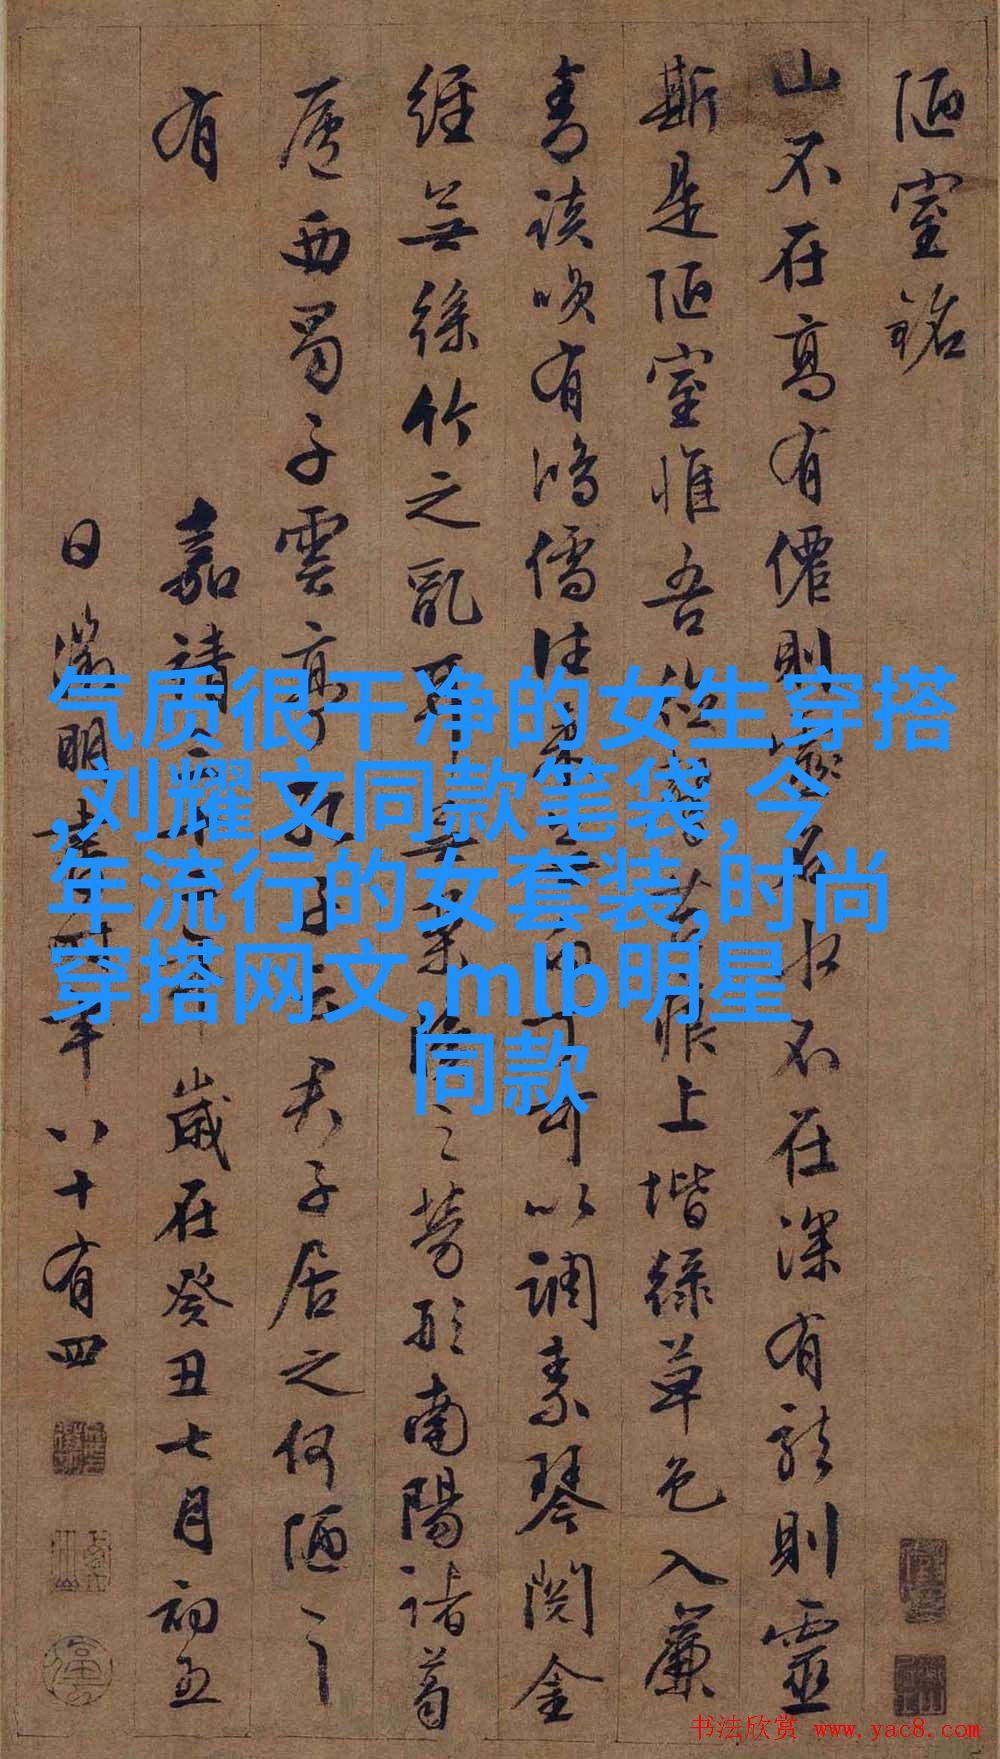 陋室銘
山不在高有僊則名水不在深有龍則靈
斯是陋室惟吾德馨苔痕上堦綠草色入簾
青談咲有鴻儒往來無白丁可以調素琴閱金
經無絲竹之亂耳無案牘之勞形南陽諸葛
廬西蜀子雲亭孔子云君子居之何陋之
有
嘉靖三十二年歲在癸丑七月初五
日徵明書時年八十有四
气质很干净的女生穿搭
,刘耀文同款笔袋,今
年流行的女套装,时尚
穿搭网文,mlb明星
同款
书法欣赏 www.yac8.com